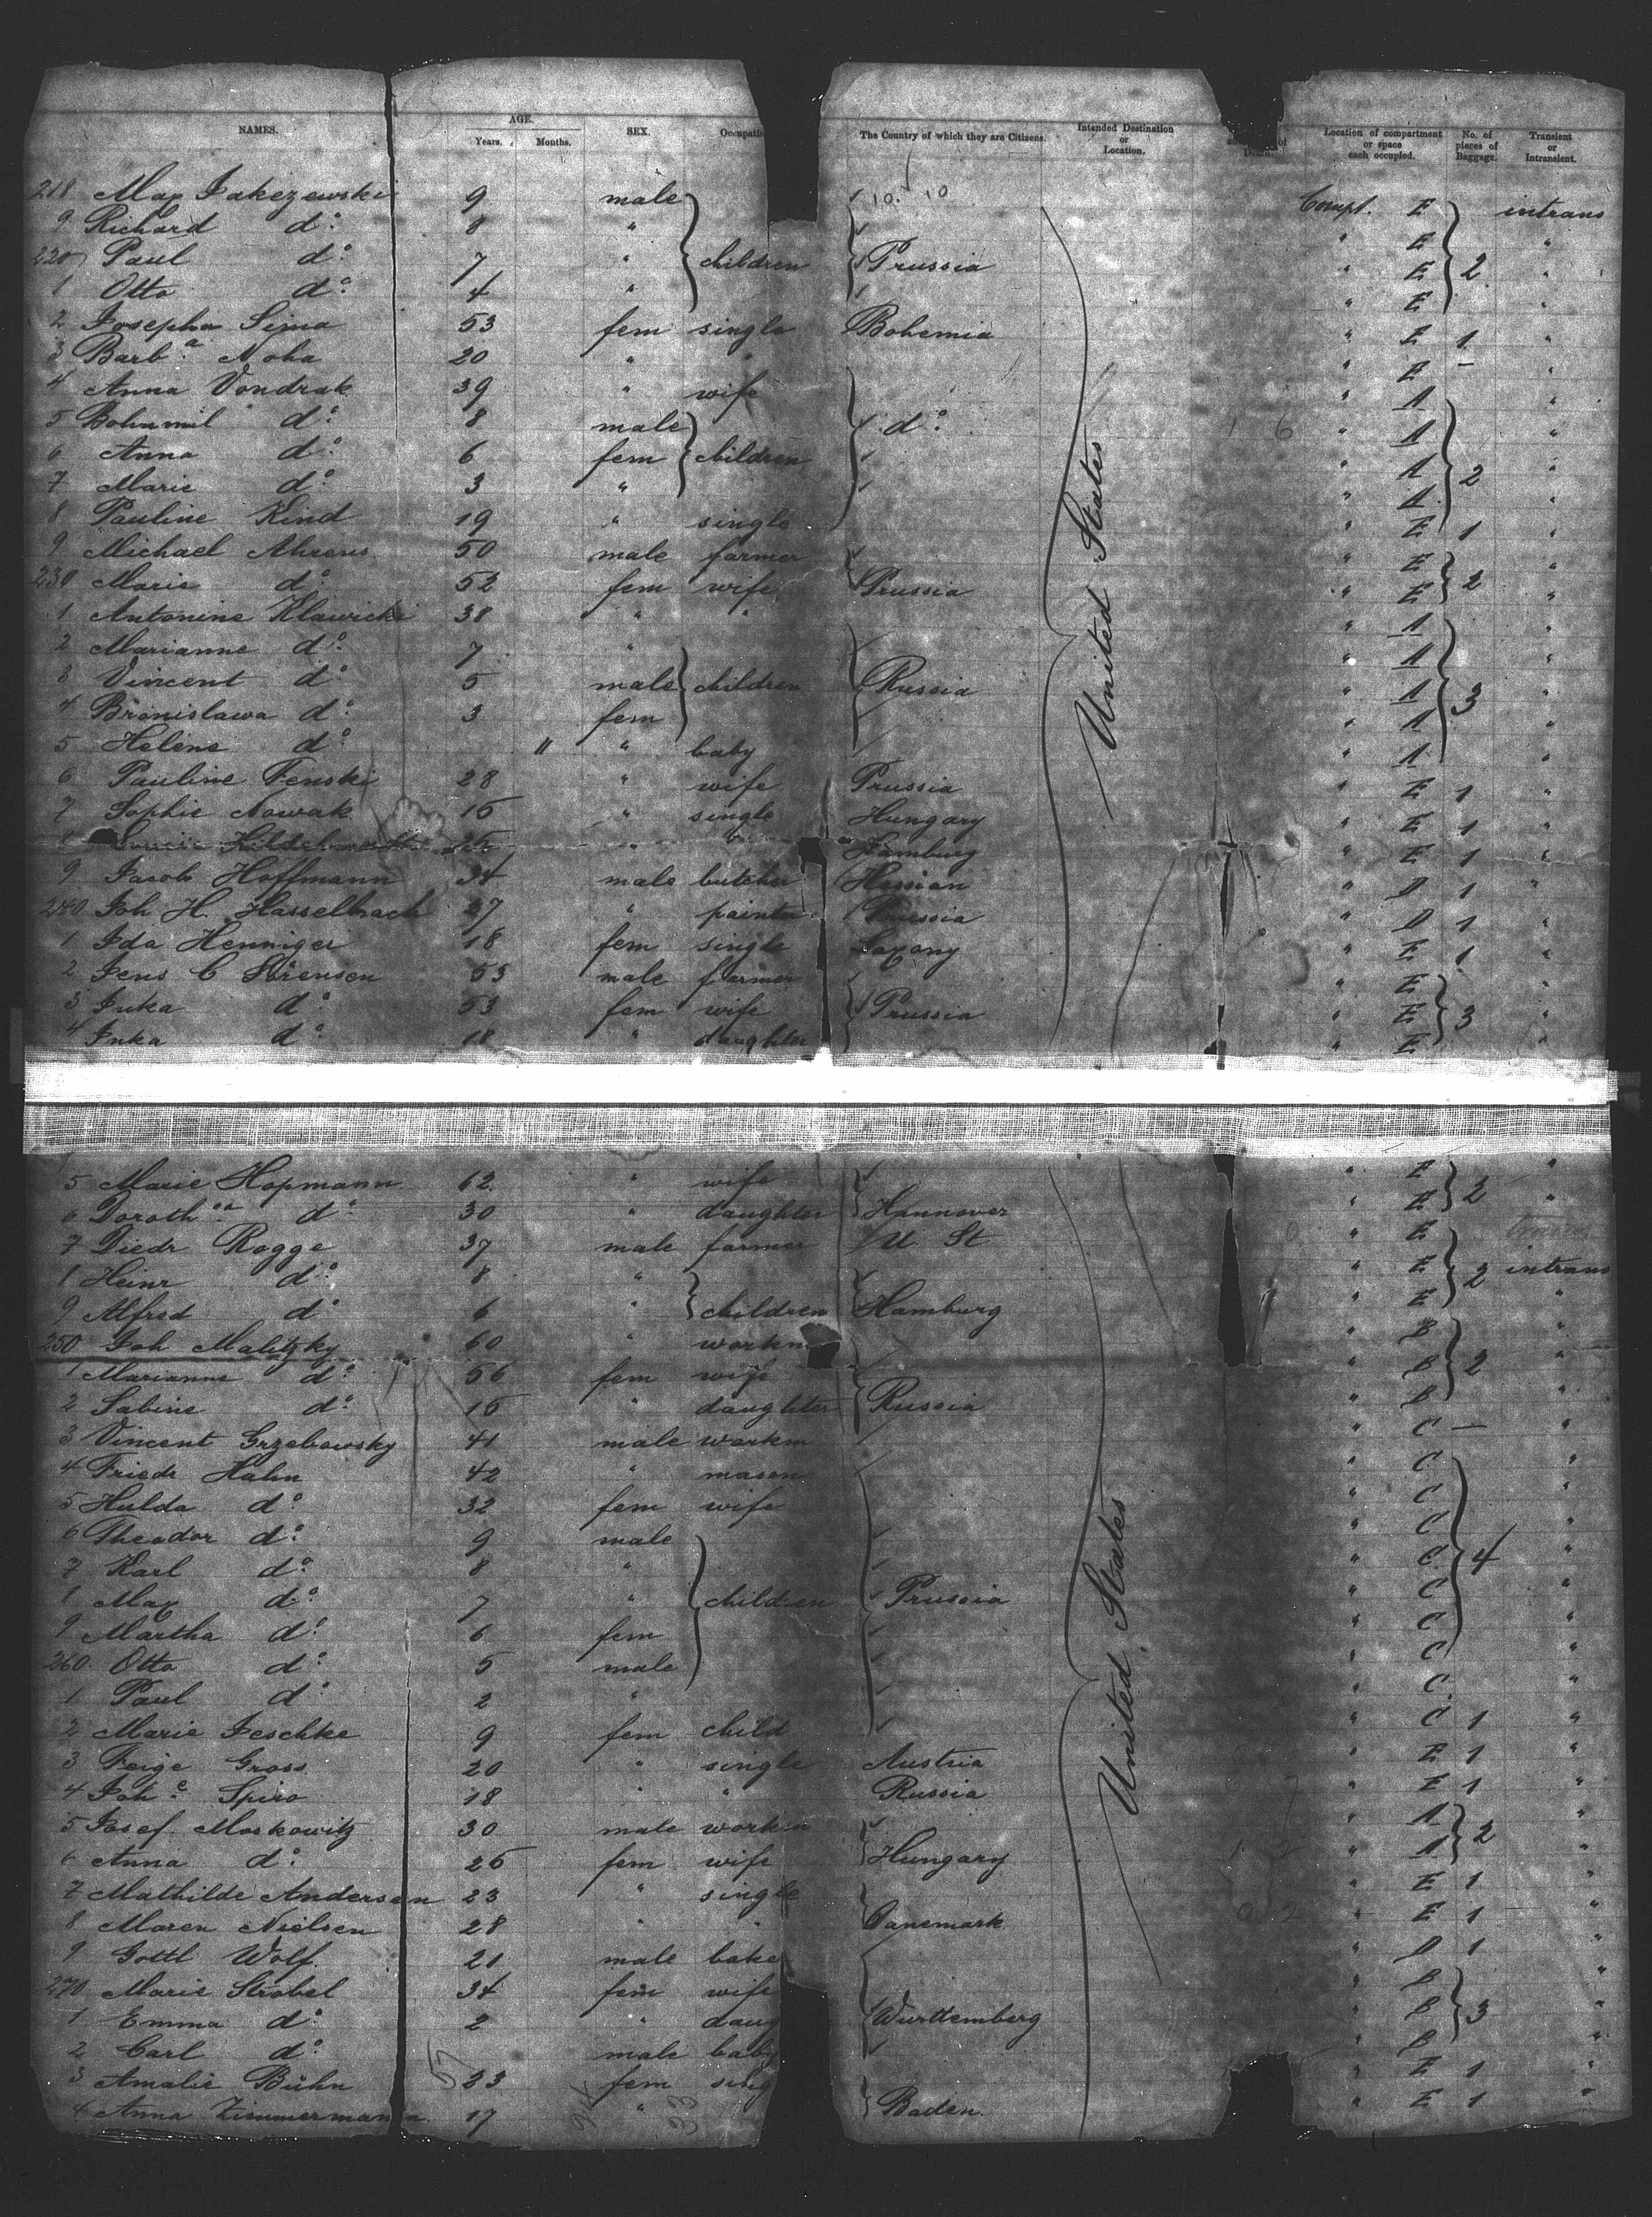 NAMES. AGE. Years. Months. SEX. The Country of which they are Citizens. Intended Destination or Location. of Location of compartment or space each occupied. No. of pieces of Baggage. Transient or Intransient.
218 Max Jakezewski 9 male Compt. E intrans
9 Richard do. 8 " " E "
220 Paul do. 7 " children Prussia " E 2 "
1 Otto do. 4 " " E "
2 Josepha Sima 53 fem single Bohemia " E 1 "
3 Barb.a Noha 20 " " " E – "
4 Anna Vondrak 39 " wife " A "
5 Bohumil do. 8 male do. " A "
6 Anna do. 6 fem children " A 2 "
7 Marie do. 3 " " A "
8 Pauline Kind 19 " single " E 1 "
9 Michael Ahrens 50 male farmer " E "
230 Marie do. 52 fem wife Prussia " E 2 "
1 Antonine Klawicki 38 " " " A "
2 Marianne do. 7 " " A "
3 Vincent do. 5 male children Russia " A 3 "
4 Bronislawa do. 3 fem " A "
5 Helene do. 11 " baby " A "
6 Pauline Fenski 28 " wife Prussia " E 1 "
7 Sophie Nowak 16 " single Hungary " E 1 "
8 " Hamburg " E 1 "
9 Jacob Hoffmann 34 male butcher Hessian " D 1 "
240. Joh H. Hasselbach 27 " painter " D 1 "
1 Ida Henniger 18 fem single Saxony " E 1 "
2 Jens C Sörensen 53 male farmer " E "
3 Juka do. 53 fem wife Prussia " E 3 "
4 Inka do. 18 " daughter " E
United States
5 Marie Hopmann 62 " wife " E "
6 Doroth.ea do. 30 " daughter Hannover " E 2 "
7 Diedr Rogge 37 male farmer U. St " E
8 Heinr do. 8 " " E 2 intrans
9 Alfred do. 6 " children Hamburg " E "
250 Joh Malitzky 60 " workm " B "
1 Marianne do. 56 fem wife " B 2 "
2 Sabine do. 16 " daughter Russia " B "
3 Vincent Grzebowsky 41 male workm " C – "
4 Friedr Hahn 42 " mason " C "
5 Hulda do. 32 fem wife " C "
6 Theodor do. 9 male " C "
7 Karl do. 8 " " C 4 "
8 Max do. 7 " children Prussia " C "
9 Martha do. 6 fem " C "
260. Otto do. 5 male " C "
1 Paul do. 2 " " C "
2 Marie Jeschke 9 fem child " C 1 "
3 Feige Gross 20 " single Austria " E 1 "
4 Joh.e Spiro 18 " " Russia " E 1 "
5 Josef Moskowitz 30 male workm " A "
6 Anna do. 26 fem wife Hungary " A 2 "
7 Mathilde Andersen 23 " single " E 1 "
8 Maren Nielsen 28 " " Danemark " E 1 "
9 Gottl Wolf 21 male bake " D 1 "
270 Marie Strobel 34 fem wife " B "
1 Emma do. 2 " daug Württemberg " B 3 "
2 Carl do. male baby " B "
3 Amalie Bühn 33 fem sing " E 1 "
4 Anna Zimmermann 17 " Baden " E 1 "
United States